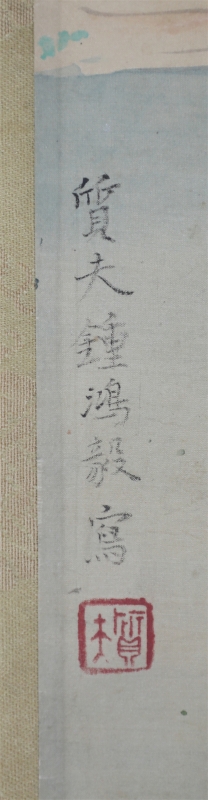 質夫鍾鴻毅寫
質夫